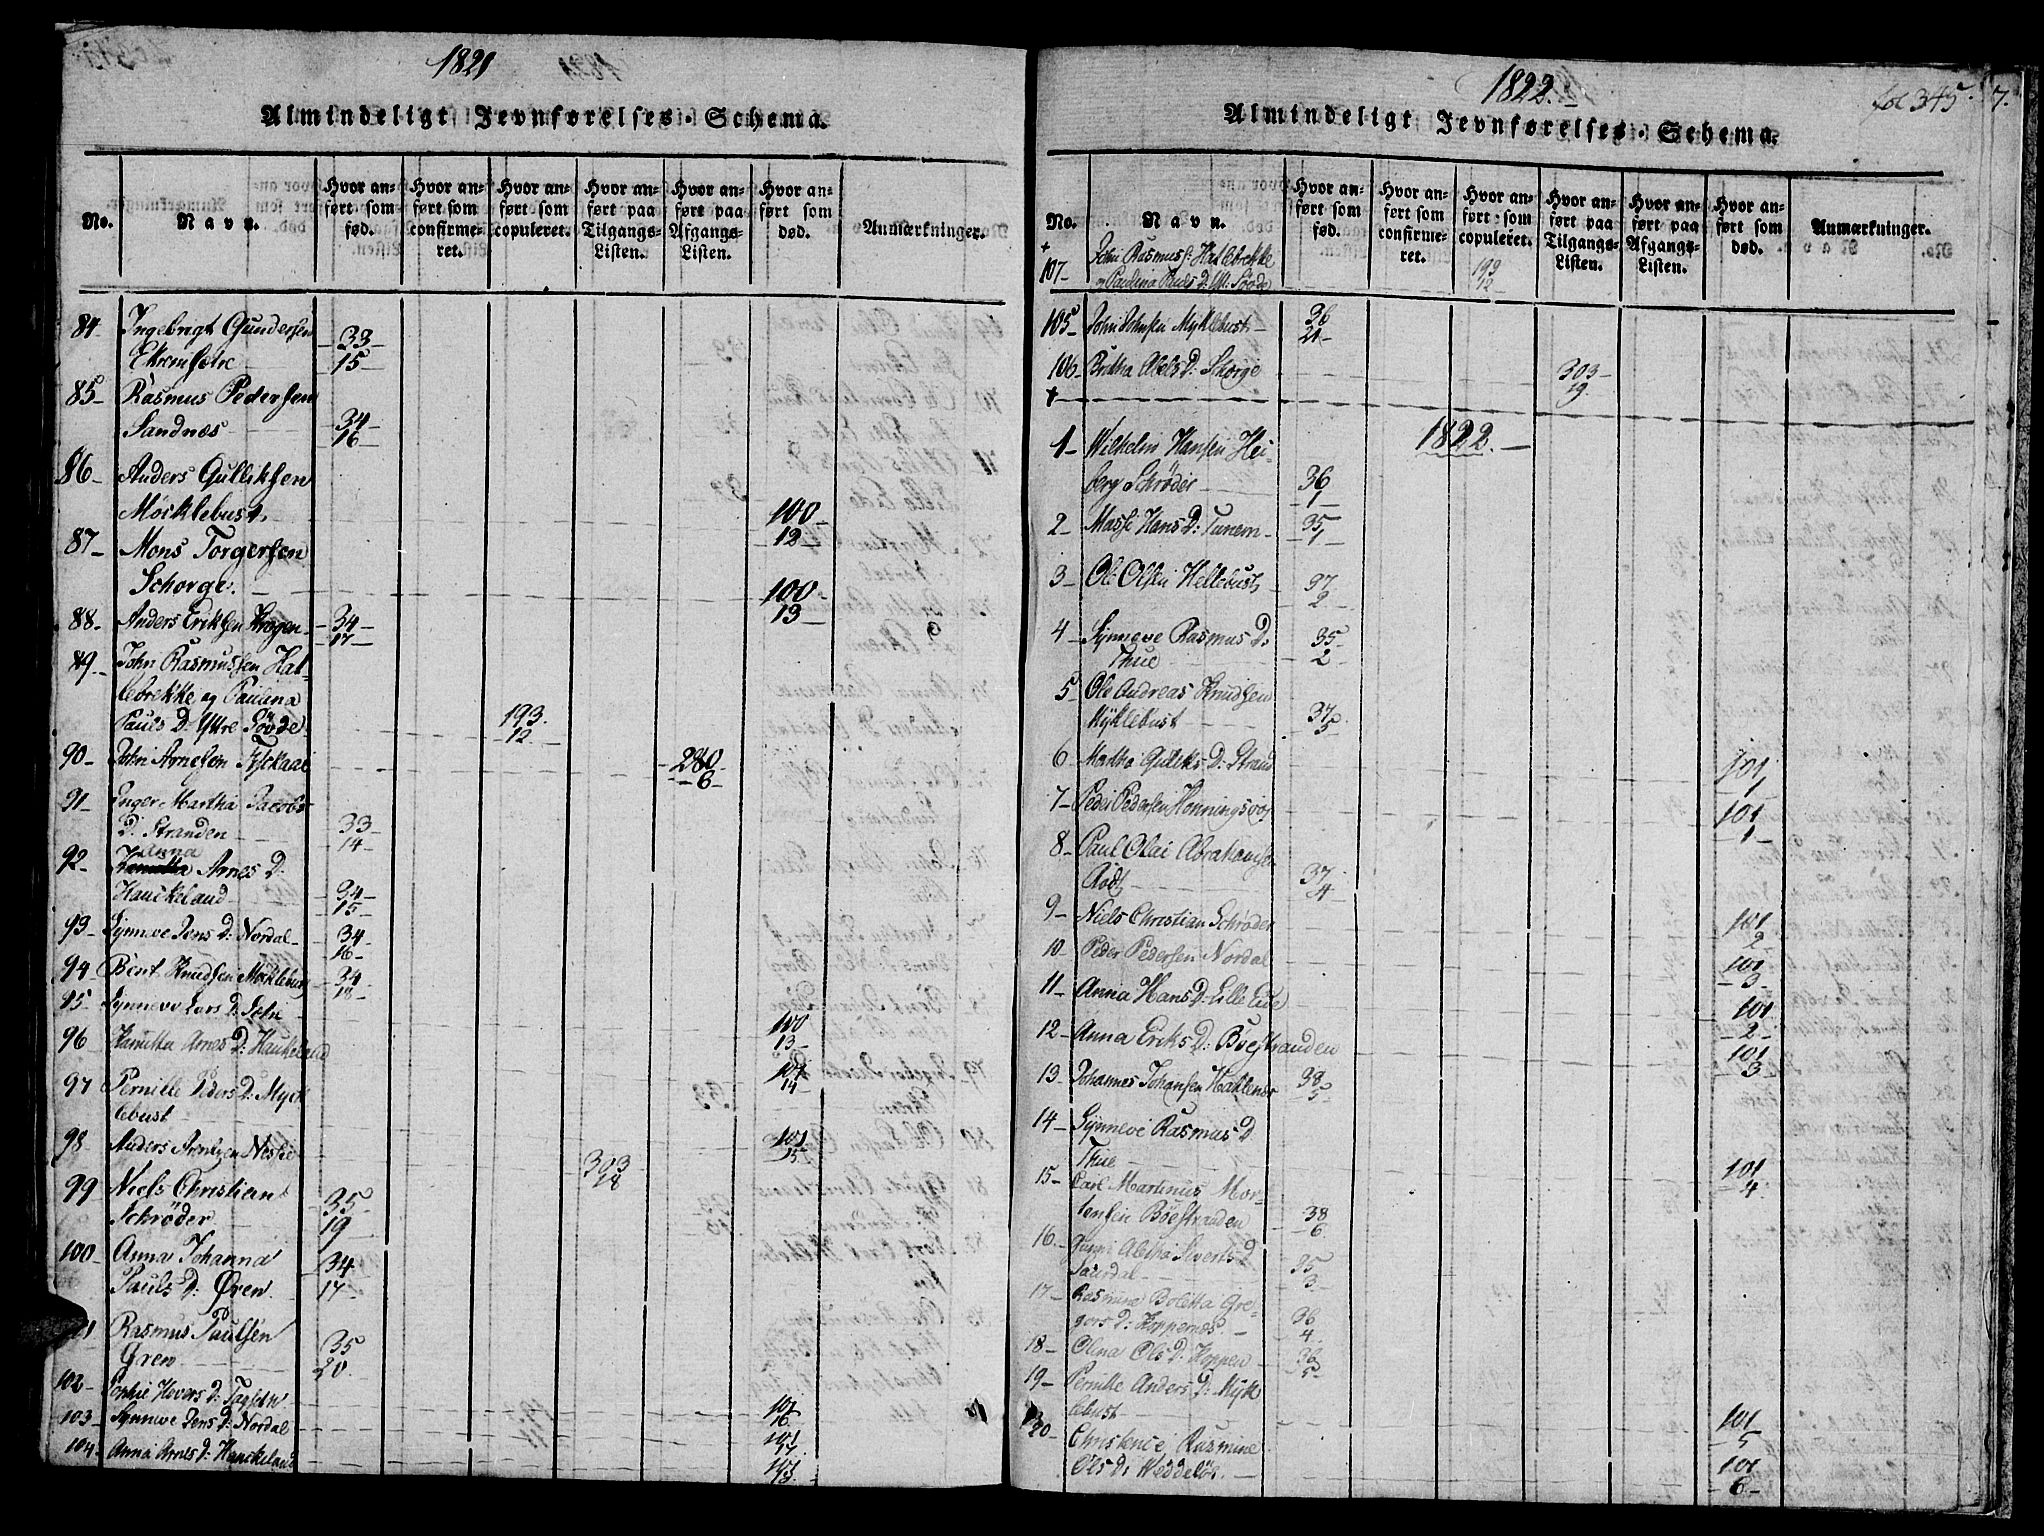 1821
Almindeligt Jevnførelses-Schema.
No.
Navn.
Hvor an-
ført som
fød.
Hvor an-
ført som
confirme-
ret.
Hvor an-
ført som
copuleret.
Hvor an-
ført paa
Tilgangs-
Listen.
Hvor an-
ført paa
Afgangs-
Listen.
Hvor an-
ført som
død.
Anmærkninger.
84 Ingebrigt Gundersen
Ekremsætre 33 15
85 Rasmus Pedersen
Sandnæs 34 16
86 Anders Gulliksen
Møcklebust 100 12
87 Mons Torgersen
Schorge 100 13
88 Anders Eriksen Krogen 34 17
89 John Rasmussen Hal-
lebrekke og Paulina
Pauls D: Ytre Søvde 193 12
90 John Arnesen 280 6
91 Inger Martha Jacobs
D: Stranden 33 14
92 Anna Arnes D:
Hauckeland 34 15
93 Synneve Jens D: Nordal 34 16
94 Bent Knudsen Mocklebust 34 18
95 Synneve Lars D: 100 13
96 Hanitha Arnes D: Haukeland 101 14
97 Pernille Peders D: Myck-
lebust 101 15
98 Anders Arntzen Nesse 303 18
99 Niels Christian
Schrøder 35 19
100 Anna Johanna
Pauls D: Øren 34 17
101 Rasmus Paulsen
Øren 35 20
102 Sophie Hevers D: 101 16
103 Synneve Jens D: Nordal 101 17
104 Anna Arnes D: Hauckeland 101
1822.
fol 345.
7.
Almindeligt Jevnførelses-Schema.
No.
Navn.
Hvor an-
ført som
fød.
Hvor an-
ført som
confirme-
ret.
Hvor an-
ført som
copuleret.
Hvor an-
ført paa
Tilgangs-
Listen.
Hvor an-
ført paa
Afgangs-
Listen.
Hvor an-
ført som
død.
Anmærkninger.
107 John Rasmuss: Hallebrekke
og Paulina Pauls D: Søvde 193 12
105 John Johnsen Myklebust 36 21
106 Britha Olels D: Schorge 303 19
1822.
1 Wilhelm Hansen Hei-
berg Schrøder 36 1
2 Masse Hans D: Tunem 35 1
3 Ole Olsen Hellebust 37 2
4 Synneve Rasmus D:
Thue 35 2
5 Ole Andreas Knudsen
Myklebust 37 3
6 Martha Guliks D: Strand 101 1
7 Peder Pedersen Honningsvog 101 1
8 Paul Olai Abrahamse
Aadt 37 4
9 Niels Christian Schrøder 101 2
10 Peder Pedersen Nordal 101 3
11 Anna Hans D: Lille Eide 101 2
12 Anna Eriks D: Boestranden 101 3
13 Johannes Johansen Haklenes 38 5
14 Synneve Rasmus D
Thue 101 4
15 Carl Martinus Mor-
tensen Böestranden 38 6
16 Gunni Sivert's D
Saurdal 35 3
17 Rasmine Boletta Gre-
gers D: Koppernæs 36 4
18 Olina Ols D: Koppen 36 5
19 Pernille Anders D: Myk
lebust 101 5
20 Christence Rasmine
Ols D: Weddeløe 101 6